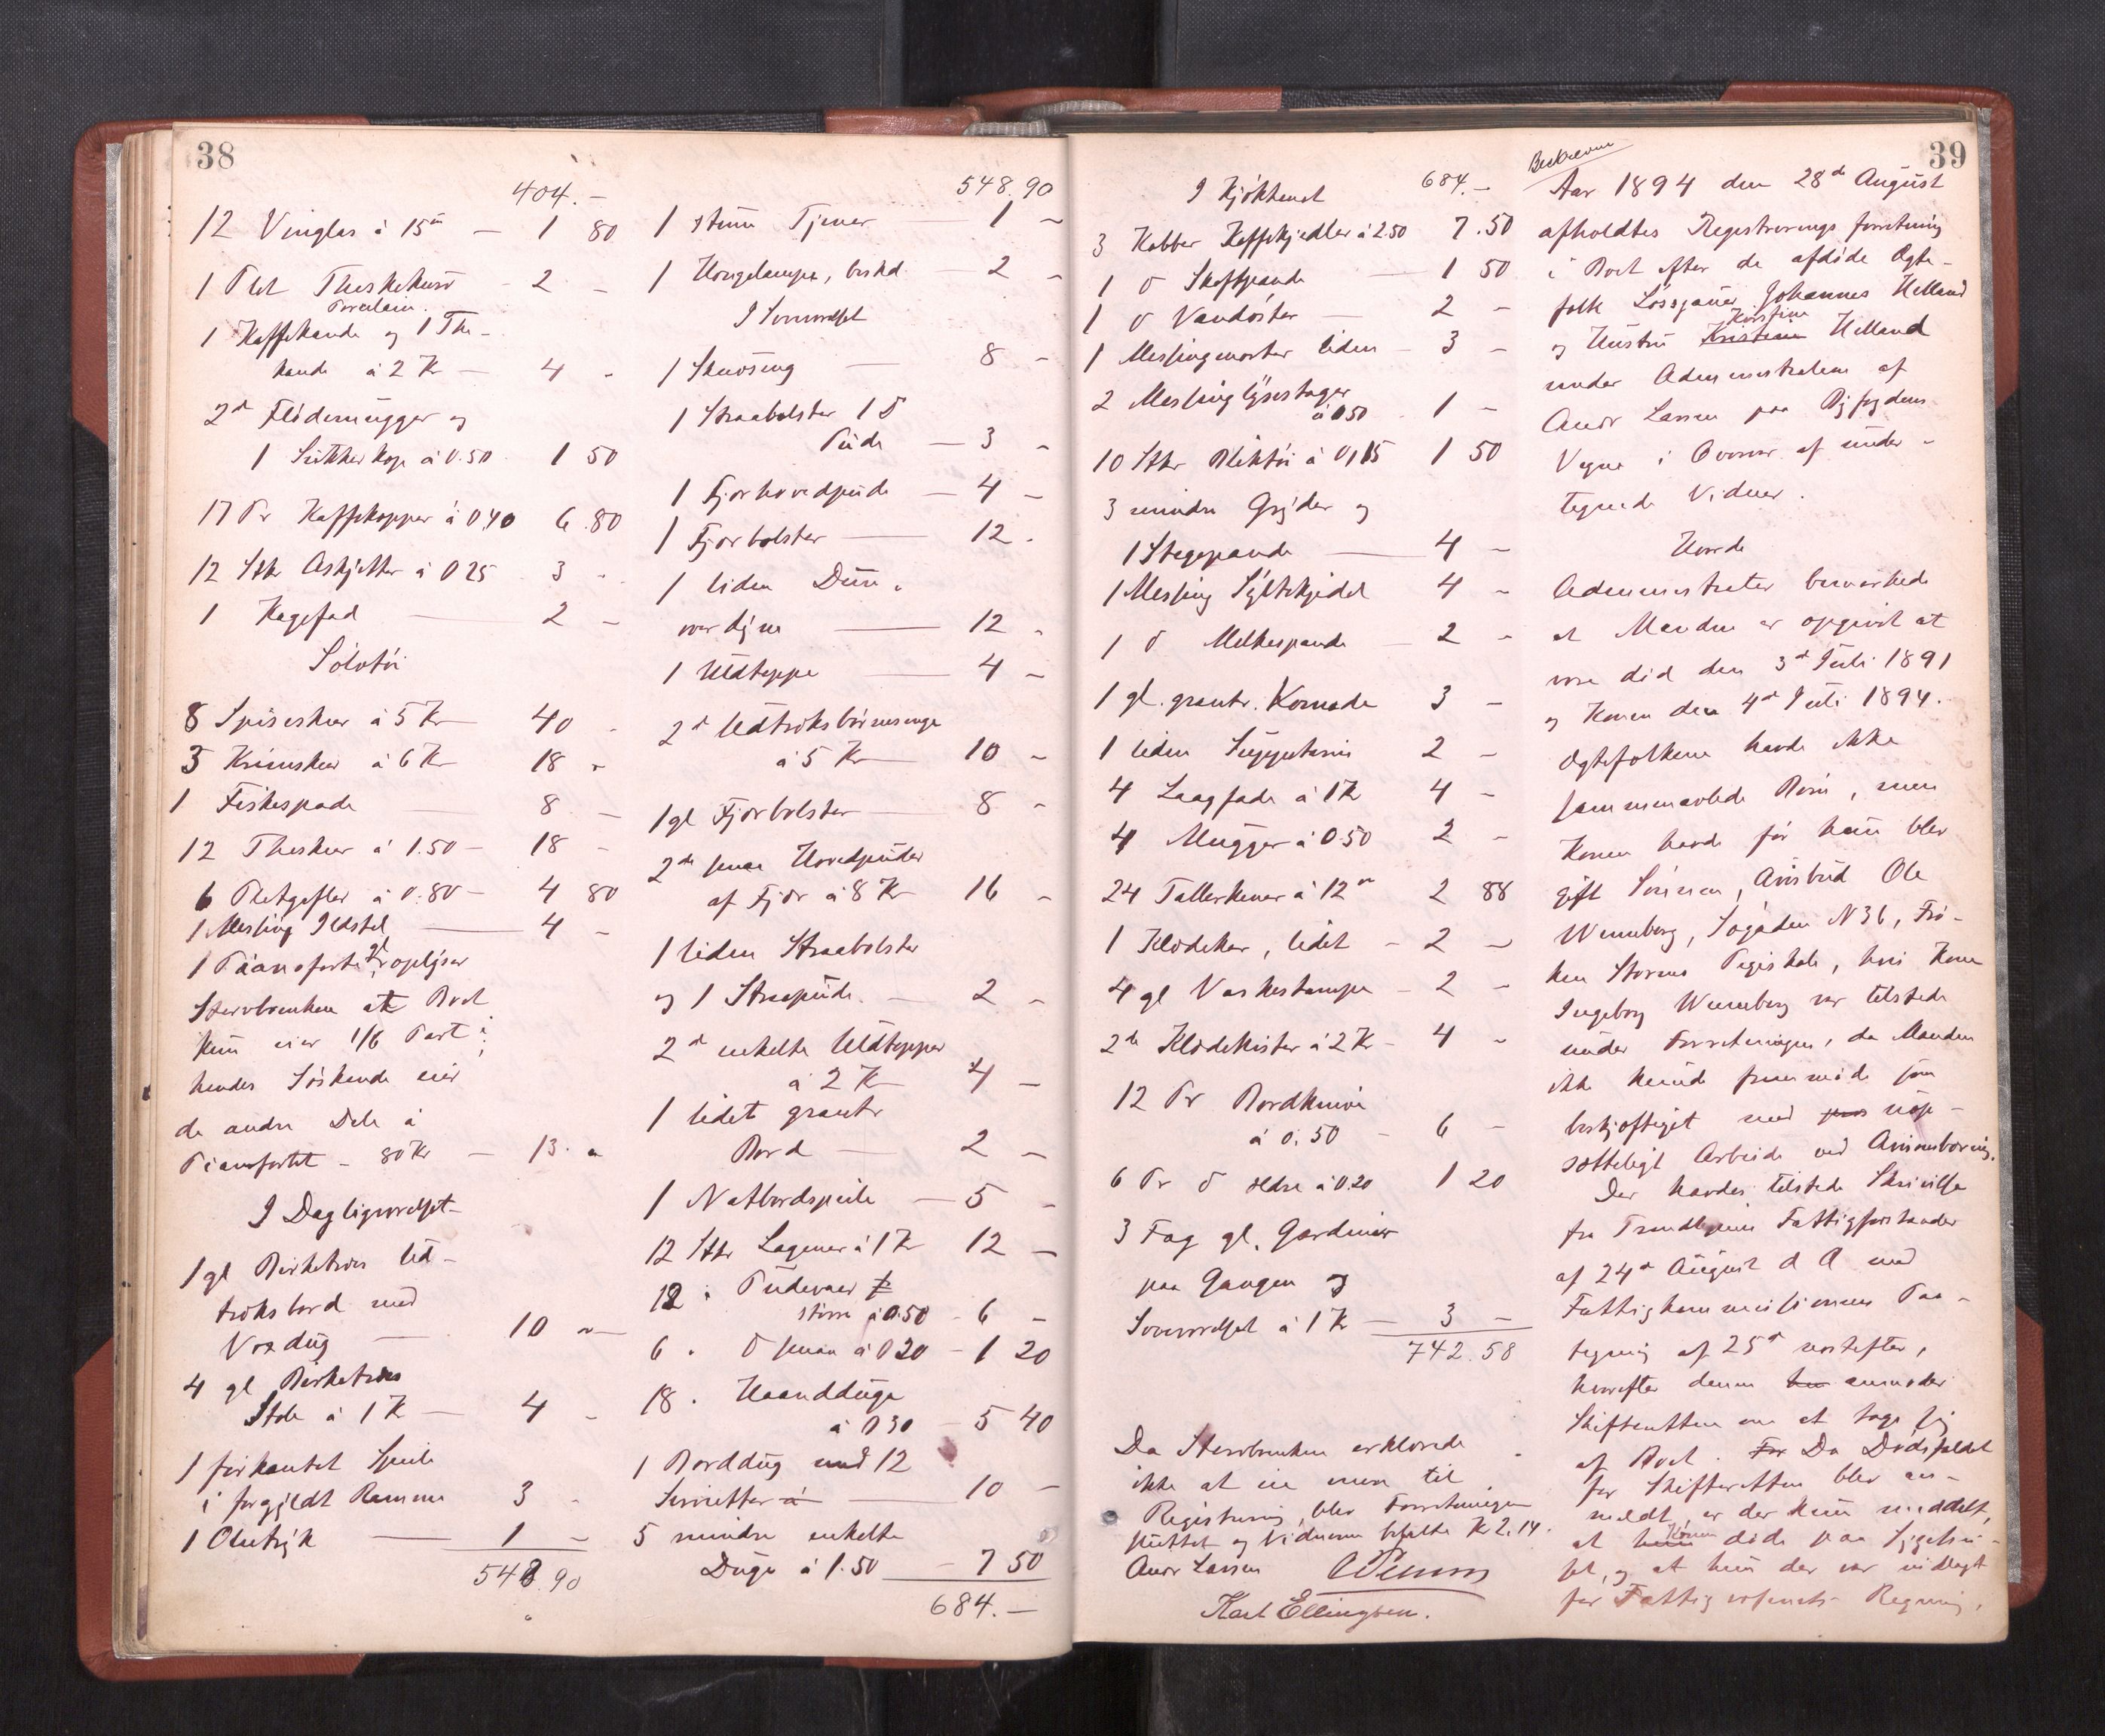 38
404.-
12 Vinglas á 15 ør — 1 80
1 Plet Theskekurv - 2 -
Porcelain.
1 Kaffekande og 1 The-
kande á 2 Kr — 4 -
2de Flødemugger og
1 Sukkerkop á 0.50 1 50
17 Pr Kaffekopper á 0,40 6.80
12 Stkr Askjetter á 0 25 3 -
1 Kagefad — 2 -
Sølvtøi
8 Spiseskeer á 5 Kr 40 -
3 Krumskeer á 6 Kr 18 -
1 Fiskespade — 8 -
12 Theskeer á 1.50 - 18 -
6 Pletgafler á 0.80 - 4 80
1 Messing Ildstel — 4 -
1 Pianoforte oplyser
Stervboenken at Boet
kun eier 1/6 Part i,
hendes Søskende eier
de andre Dele á
Pianofortet - 80 Kr — 13. -
I Dagligværelset
1 gl Birketræes Ud-
træksbord med
Voxdug — 10 -
4 gl Birketræes
Stole á 1 Kr — 4 -
1 firkantet Speile
i forgyldt Ramme 3 -
1 Olietryk — 1 -
548.90
548.90
1 stum Tjener — 1 -
1 Hængelampe, beskd. — 2 -
I Soveværelset
1 Skuvseng — 8 -
1 Straabolster 1 D
Pude — 3 -
1 Fjærhovedpude — 4 -
1 Fjærbolster — 12 -
1 liden Dun-
overdyne — 12 -
1 Uldteppe — 4 -
2de Udtræksbørnesenge
á 5 Kr 10 -
1 gl Fjærbolster — 8 -
2de smaa Hovedpuder
af Fjær á 8 Kr 16 -
1 liden Straabolster
og 1 Straapude. — 2 -
2de enkelte Uldtepper
á 2 Kr 4 -
1 lidet grantr
Bord — 2 -
1 Natbordspeile — 5 -
12 Stkr Lagener á 1 Kr 12 -
12 " Pudevaer
større á 0.50 - 6 -
6 " D smaa á 0 20 - 1 20
18 " Haandduge
á 0 30 - 5 40
1 Borddug med 12
Servietter á — 10 -
5 mindre enkelte
Duge á 1.50 — 7 50
684.-
I Kjøkkenet 684.-
3 Kobber Kaffekjedler á 2.50 7.50
1 D Skaftpande — 1 50
1 D Vandøster — 2 -
1 Messingmorter liden - 3 -
2 Messinglysestager
á 0 50 1 -
10 Stkr Bliktøi á 0,15 1 50
3 mindre Gryder og
1 Stegepande — 4 -
1 Messing Syltekjedel 4 -
1 D Melkespande - 2 -
1 gl. grantr. Komode 3 -
1 liden Suppeterin 2 -
4 Laagfade á 1 Kr 4 -
4 Mugger á 0.50 2 -
24 Tallerkener á 12 ør 2 88
1 Klædekar, lidet - 2 -
4 gl Vaskestampe - 2 -
2de Klædekister á 2 Kr - 4 -
12 Pr Bordknive
á 0.50 - 6 -
6 Pr D ældre á 0.20 1 20
3 Fag gl. Gardiner
paa Gangen og
Soveværelset á 1 Kr — 3 -
742.58
Da Stervboenken erklærede
ikke at eie mere til
Registrering, blev Forretningen
sluttet og Vidnerne betalte Kr 2.14.
Andr Larsen
Karl Ellingsen.
39
Beskreven
Aar 1894 den 28de August
afholdtes Registrerings forretning
i Boet efter de afdøde Ægte-
folk Løsgjænger Johannes Helland
Kirstine
og Hustru Kristine Helland
under Administration af
Andr Larsen paa Byfogdens
Vegne i Overvær af under-
tegnede Vidner.
Hvorda
Administrator bemærkede
at Manden er opgivet at
være død den 3de Juli 1891
og Konen den 4de Juli 1894.
Ægtefolkene havde ikke
sammenavlede Børn, men
Konen havde før hun blev
gift Sønnen, Avisbud Ole
Wennberg, Søgaden N 36,
hvis Kone
Ingeborg Wennberg var tilstede
under Forretningen, da Manden
ikke kunde fremmøde som
beskjæftiget med uop-
sætteligt Arbeide ved Avisombæring.
Der havdes tilstede Skrivelse
fra Trondhjems Fattigforstander
af 24de August d A med
Fattigkommissionens Paa-
tegning af 25de næstefter,
hvorefter denne anmoder
Skifteretten om at tage sig
af Boet. For Da Dødsfaldet
for Skifteretten blev an-
meldt, er der kun meddelt,
Konen
at hun døde paa Sygehu-
set, og at hun der var indlagt
for Fattigvæsenets Regning,